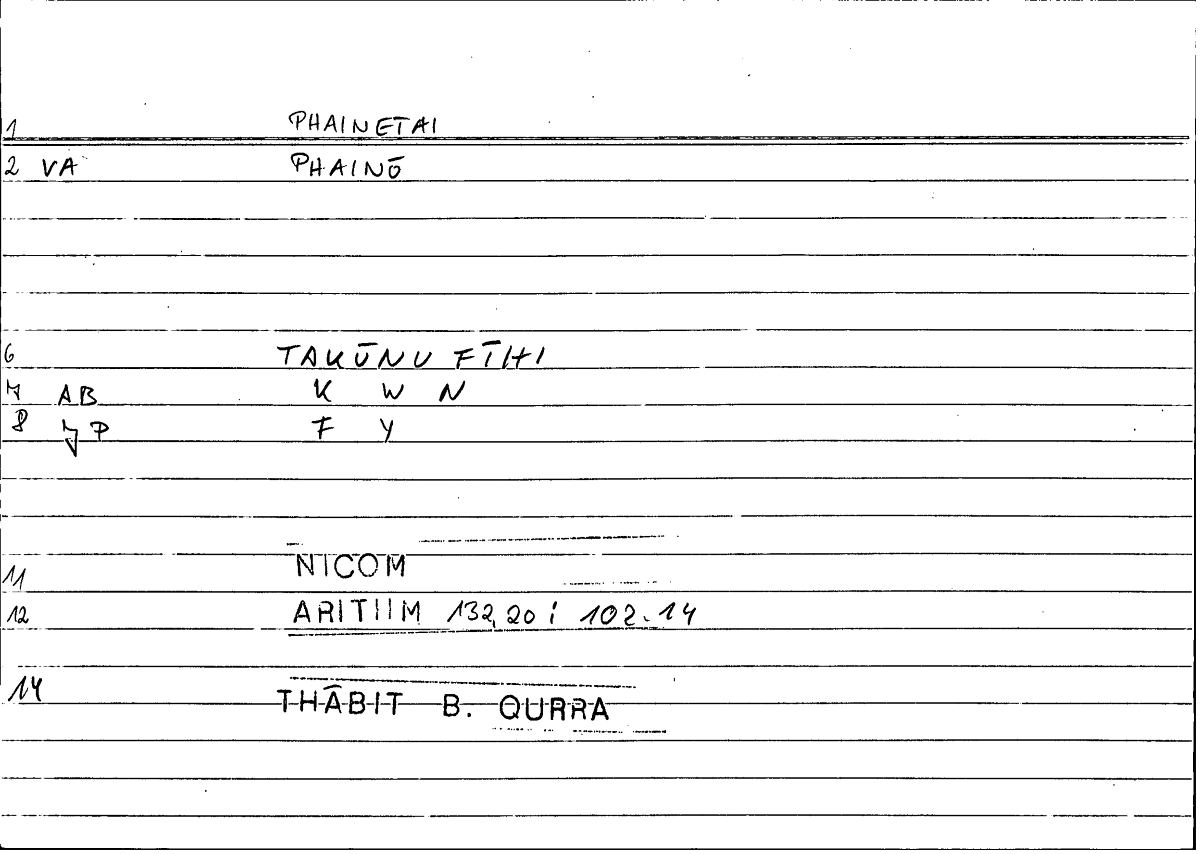 1 PHAINETAI
2 VA PHAINŌ
6 TAKŪNU FĪHI
7 AB K W N
8 JP F Y
11 NICOM
12 ARITIIM 132,20 : 102.14
14 THĀBIT B. QURRA